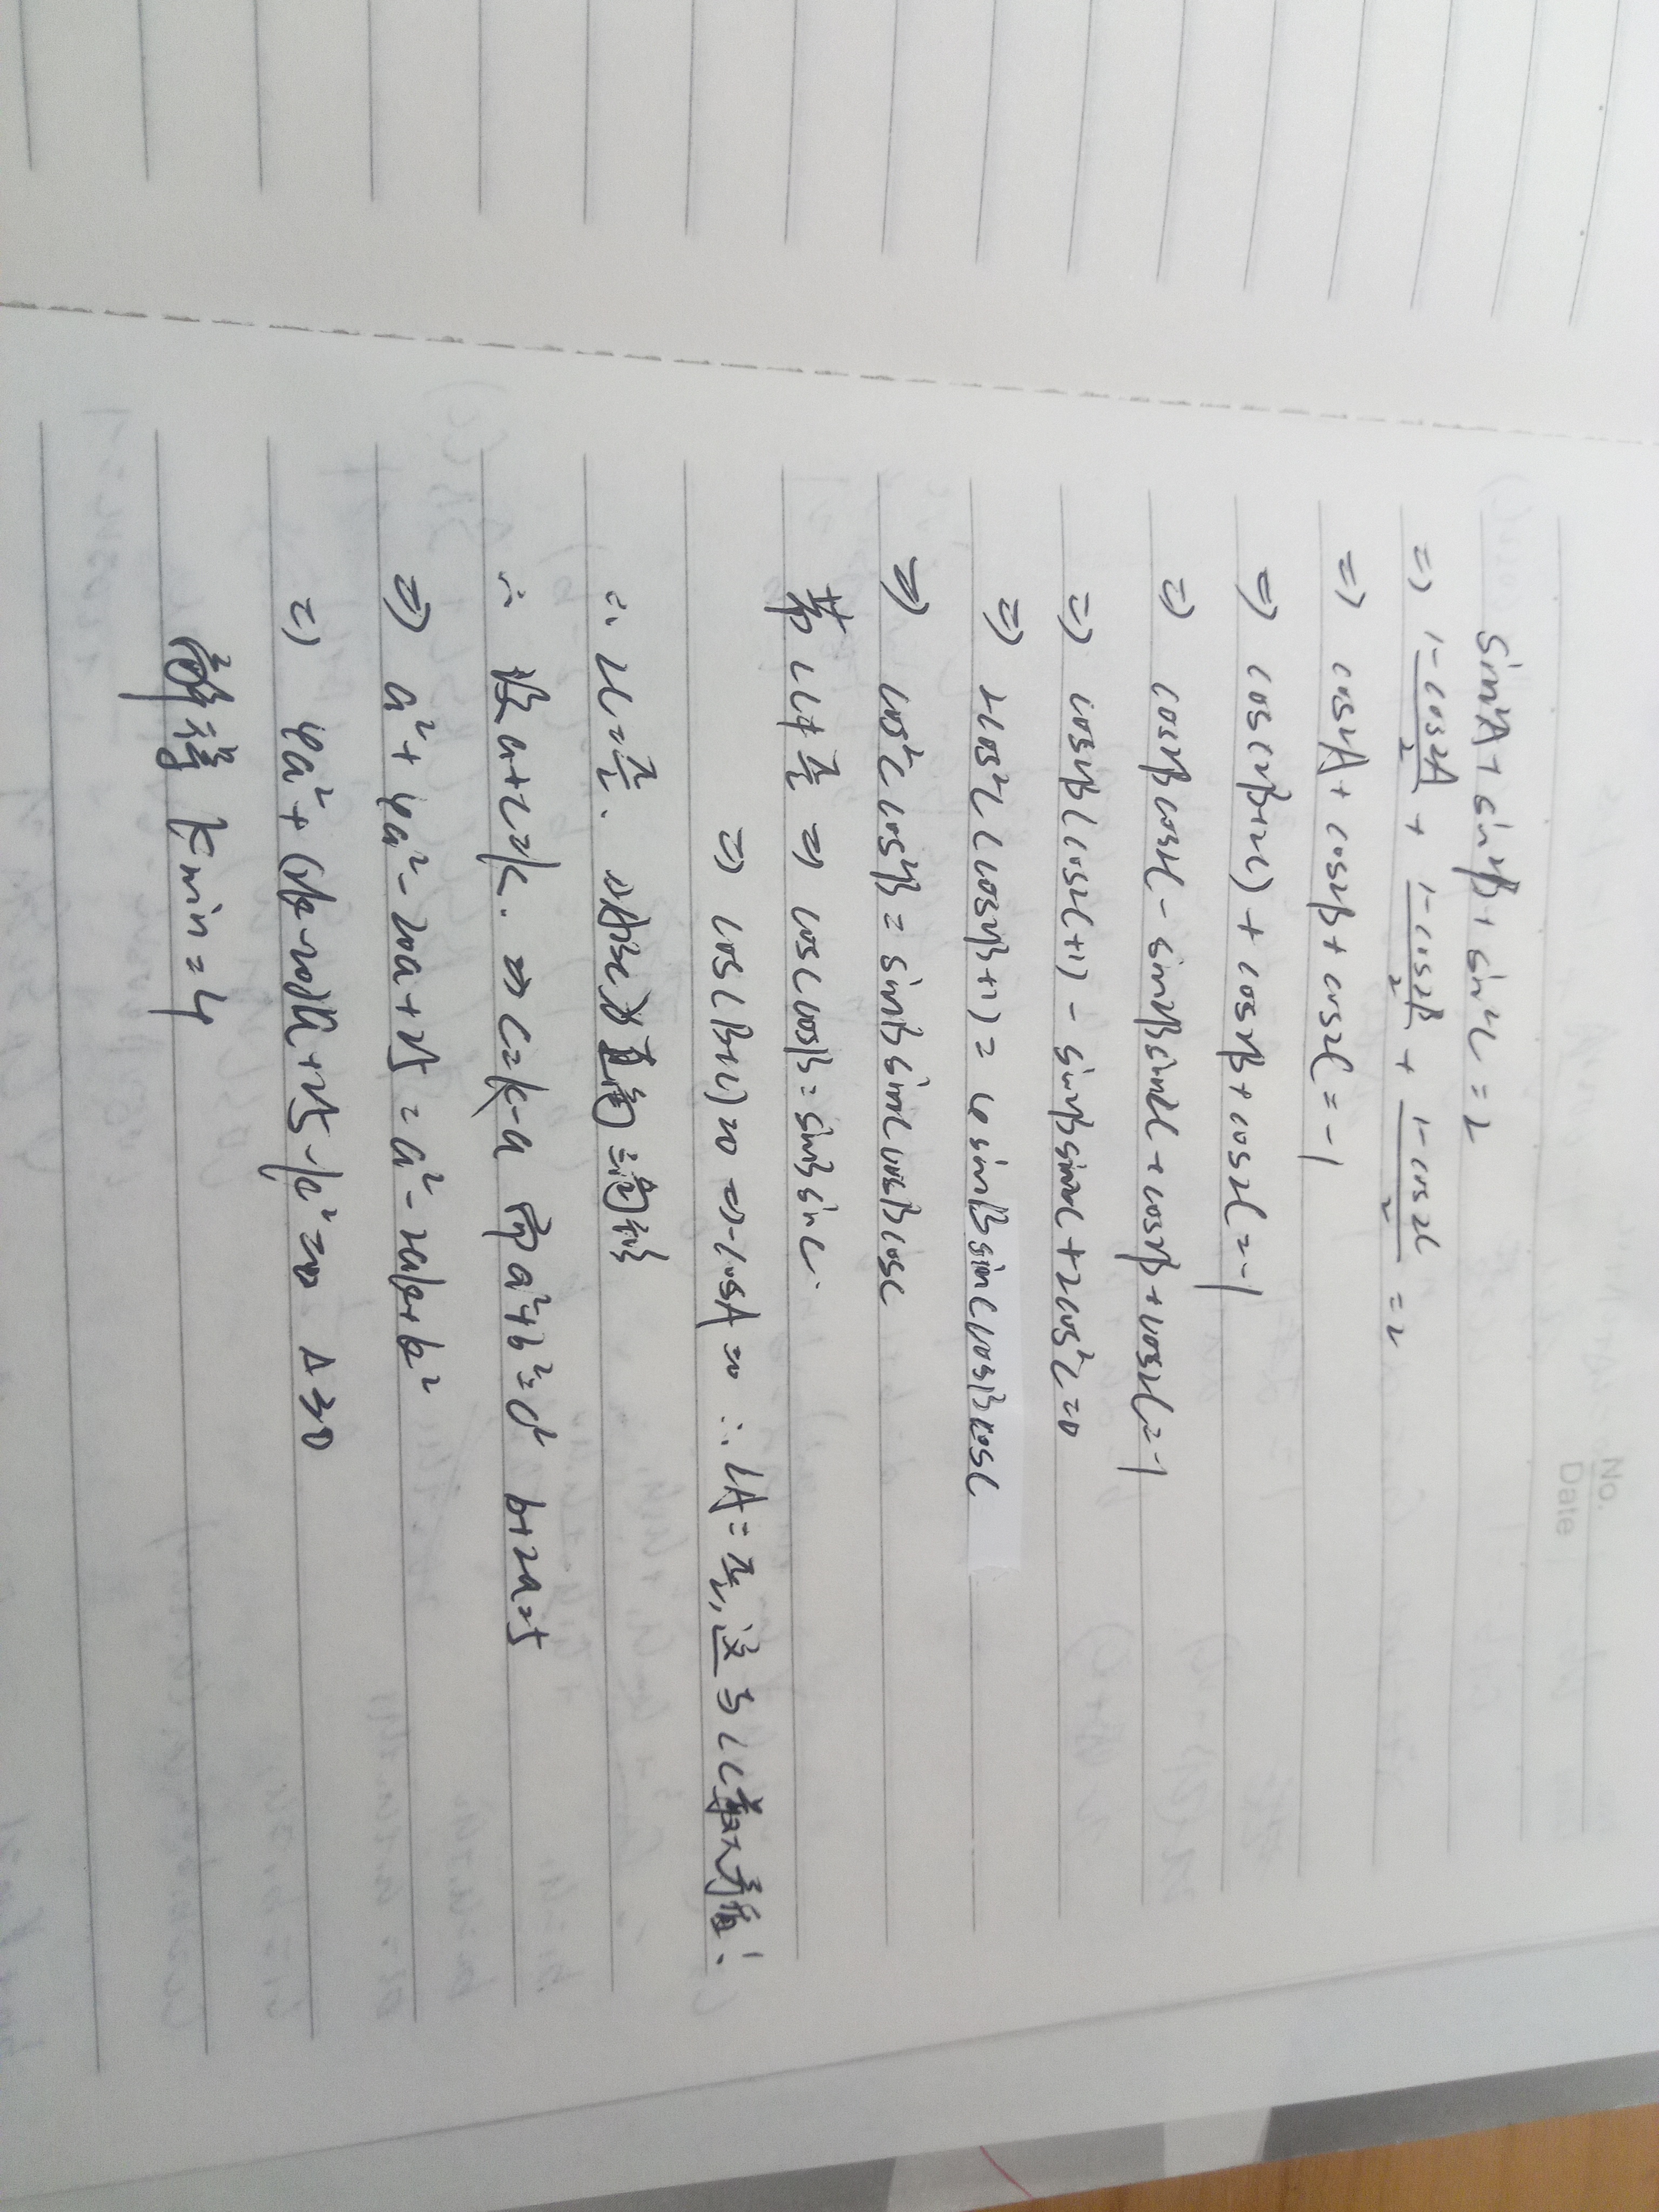 No.
Date
sin²A + sin²B + sin²C = 2
=> (1-cos2A)/2 + (1-cos2B)/2 + (1-cos2C)/2 = 2
=> cos2A + cos2B + cos2C = -1
=> cos(2B+2C) + cos2B + cos2C = -1
=> cos2Bcos2C - sin2Bsin2C + cos2B + cos2C = -1
=> cos2B(cos2C+1) - sin2Bsin2C + 2cos²C = 0
=> 2cos²C(cos2B+1) = 4sinBsinCcosBcosC
=> cos²Ccos²B = sinBsinCcosBcosC
若∠C≠π/2 => cosCcosB = sinBsinC.
=> cos(B+C)=0 => -cosA=0 ∴∠A=π/2, 这与∠C最大矛盾!
∴ ∠C=π/2. △ABC为直角三角形
∴ 设a+c=k. => c=k-a 而a²+b²=c² b+2a=5
=> a²+4a²-20a+25 = a²-2ak+k²
=> 4a²+(2k-20)a+25-k²=0 Δ≥0
解得 kmin=4